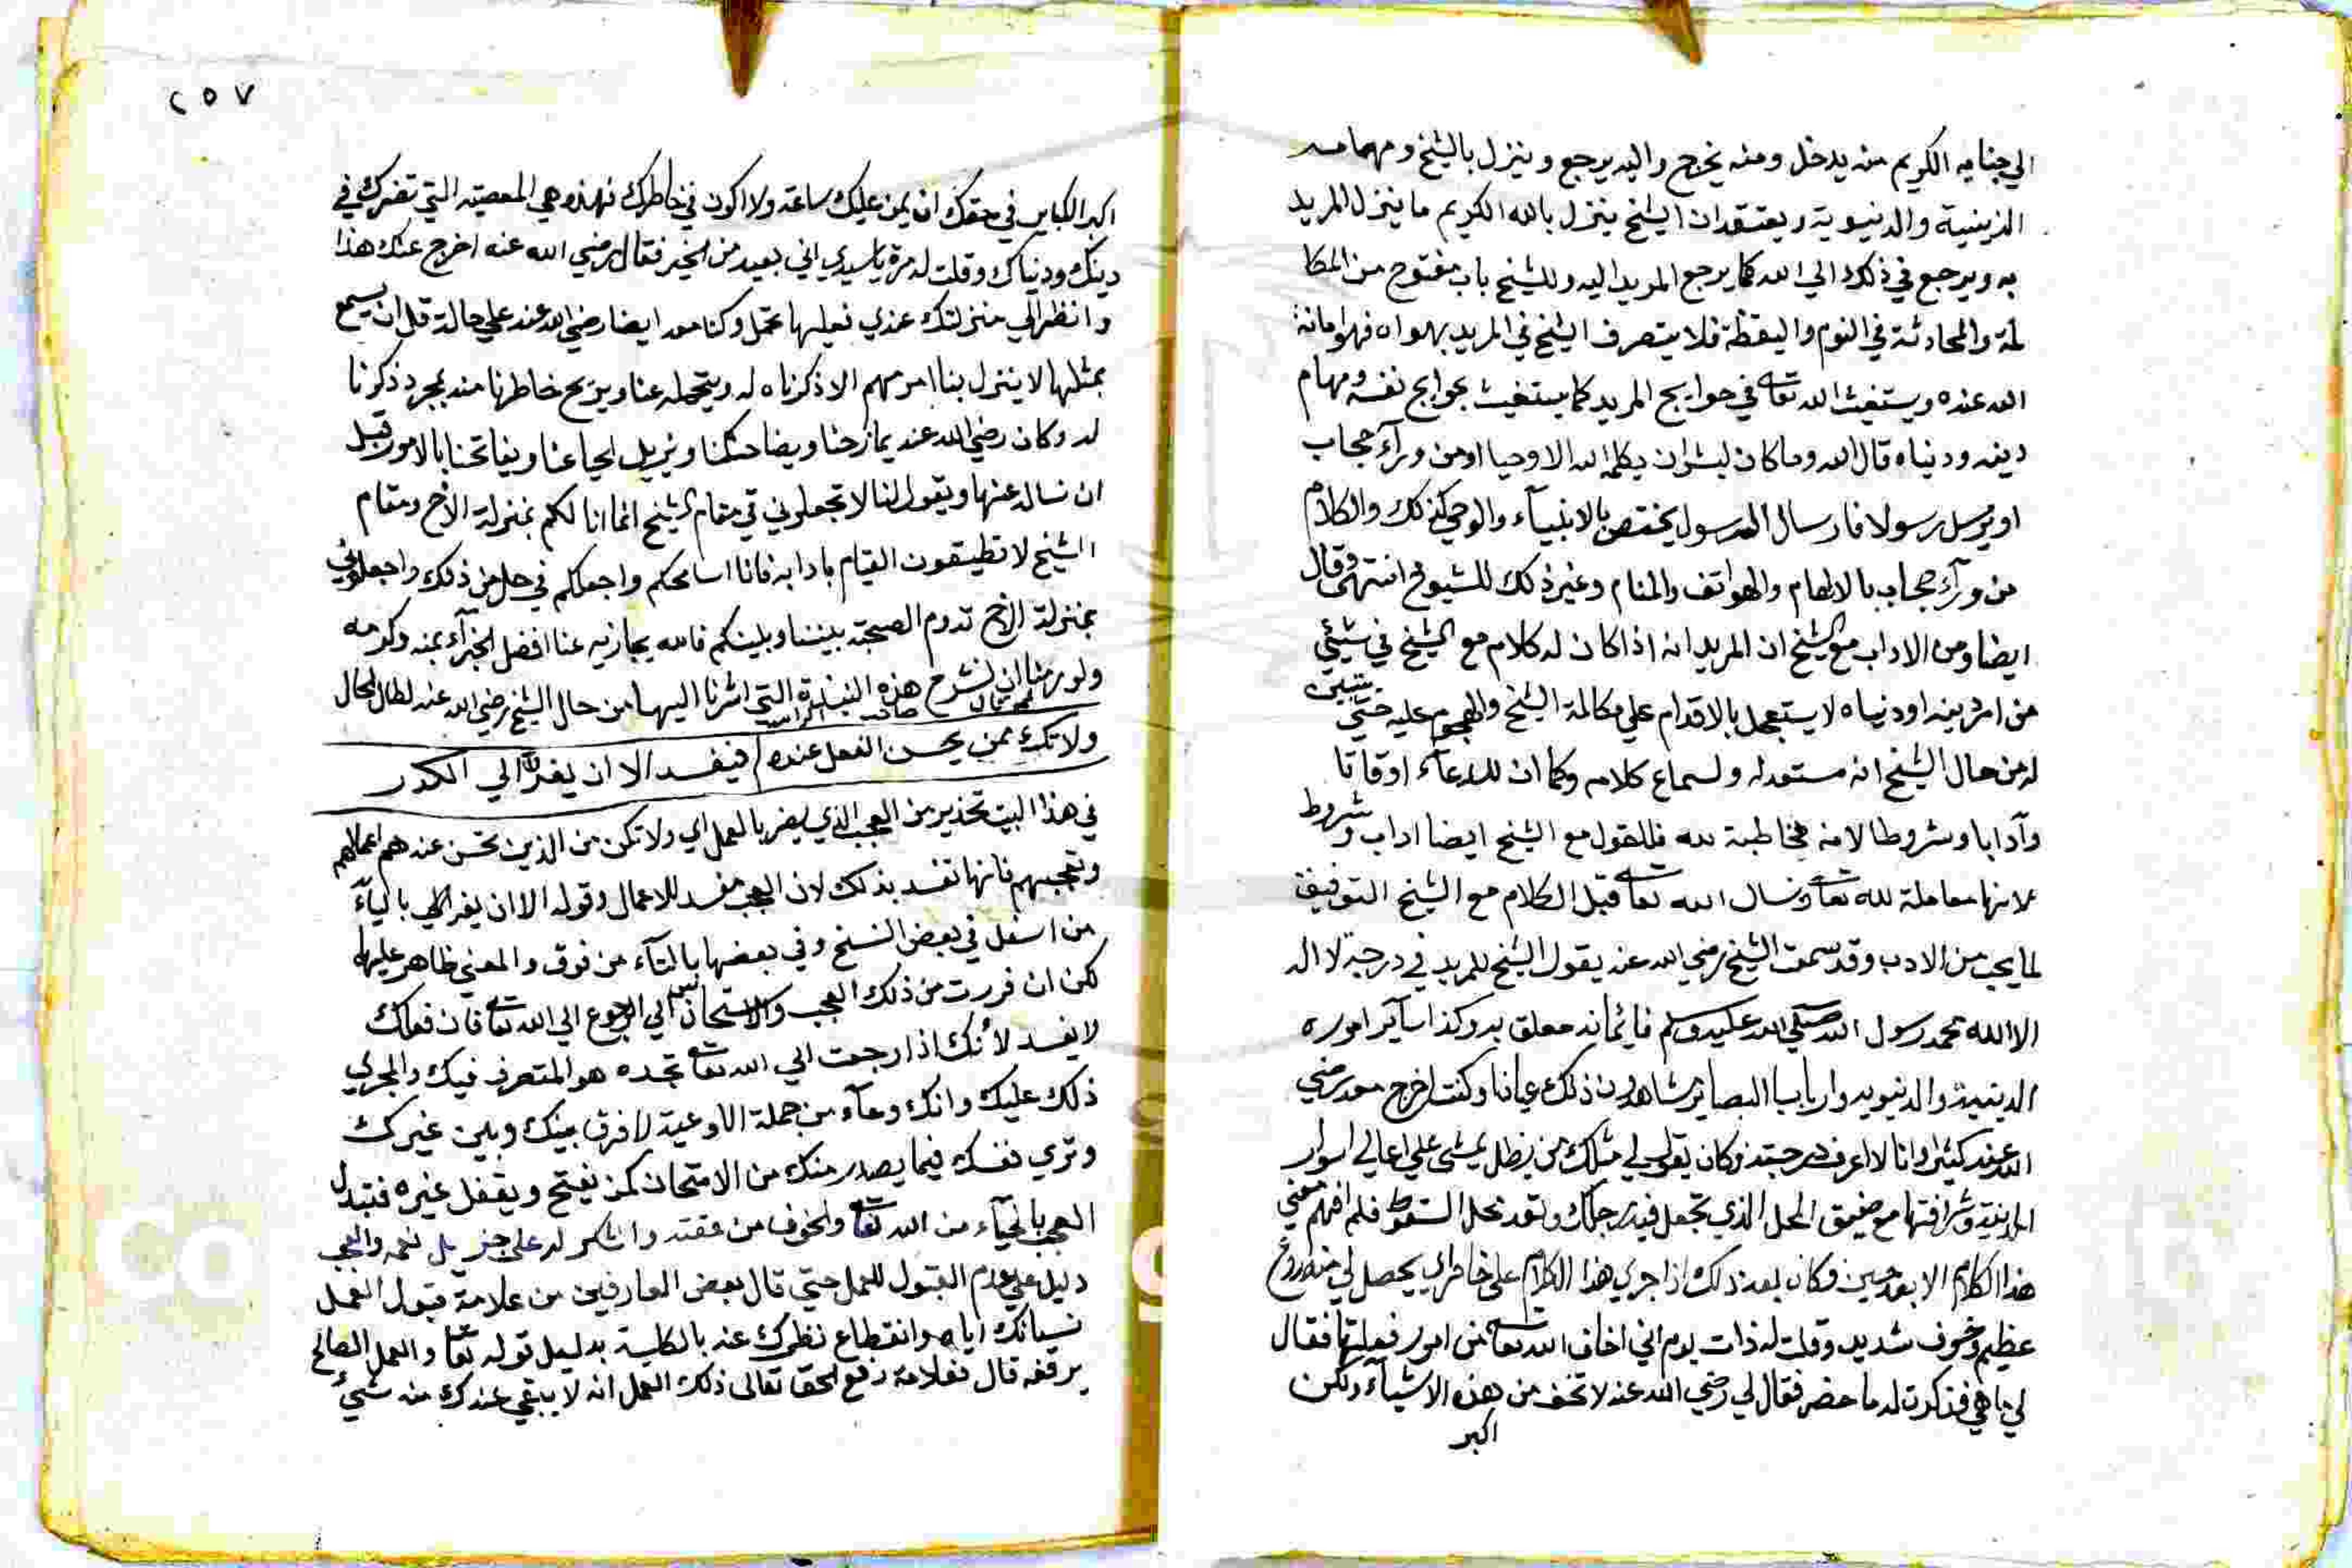 الي جنابه الكريم منه يدخل ومنه يخرج واليه يرجع وينزل بالشيخ ومهامه
الدينية والدنيوية ويعتقد ان الشيخ ينزل بالله الكريم ما ينزل المريد
به ويرجع في ذلك الي الله كما يرجع المريد اليه وللشيخ باب مفتوح من المكا
لمة والمحادثة في النوم واليقظة فلا يتصرف الشيخ في المريد بهواه فهو امانة
الله عنده ويستغيث الله تعا في حوايج المريد كما يستغيث بحوايج نفسه ومهام
دينه ودنياه قال الله وما كان لبشر ان يكلمه الله الا وحيا او من ورآء حجاب
او يرسل رسولا فارسال الرسول يختص بالانبيآء والوحي كذلك والكلام
من ورآء حجاب بالالهام والهواتف والمنام وغير ذلك للشيوخ انتهى وقال
ايضا ومن الاداب مع الشيخ ان المريد انه اذا كان له كلام مع الشيخ في شيئ
من امر دينه او دنياه لا يستعجل بالاقدام علي مكالمة الشيخ والهجوم عليه حتي يتبين
له من حال الشيخ انه مستعد له ولسماع كلامه وكما ان للدعآء اوقاتا
وآدابا وشروطا لانه مخاطبة لله فللقول مع الشيخ ايضا اداب وشروط
لانها معاملة لله تعا ونسال الله تعا قبل الكلام مع الشيخ التوفيق
لما يجب من الادب وقد سمعت الشيخ رضي الله عنه يقول الشيخ للمريد في درجة لا اله
الا الله محمد رسول الله صلي الله عليه وسلم فايمانه معلق به وكذا سآير اموره
الدينية والدنيويه وارباب البصاير شاهدون ذلك عيانا وكنت اخرج معه رضي
الله عنه كثيرا وانا لا اعرف درجته وكان يقول لي مثلك من يظل يمشي علي اعالي اسوار
المدينة وشرافتها مع ضيق المحل الذي تجعل فيه رجلك وبعد محل السقوط فلم افهم معني
هذا الكلام الا بعد حين وكان بعد ذلك اذا جري هذا الكلام علي خاطري يحصل لي منه روع
عظيم وخوف شديد وقلت له ذات يوم اني اخاف الله تعا من امور فعلتها فقال
لي ما هي فذكرت له ما حضر فقال لي رضي الله عنه لا تخف من هذه الاشيآء ولكن
اكبر
٢٥٧
اكبر الكباير في حقك ان يمر عليك ساعة ولا اكون في خاطرك فهذه هي المعصية التي تضرك في
دينك ودنياك وقلت له مرة يا سيدي اني بعيد من الخير فقال رضي الله عنه اخرج عنك هذا
وانظر الي منزلتك عندي فعليها تحمل وكنا معه ايضا رضي الله عنه علي حالة قل ان يسمع
بمثلها لا ينزل بنا امر مهم الا ذكرناه له ويتحمله عنا ويزيح خاطرنا منه بمجرد ذكرنا
له وكان رضي الله عنه يمازحنا ويضاحكنا ويزيل الحيا عنا ويفاتحنا بالامور قبل
ان نساله عنها ويقول لنا لا تجعلوني في مقام الشيخ انما انا لكم بمنزلة الاخ ومقام
الشيخ لا تطيقون القيام بادابه فانا اسامحكم واجعلكم في حل من ذلك واجعلوني
بمنزلة الاخ تدوم الصحبة بيننا وبينكم فالله يجازيه عنا افضل الجزآء بمنه وكرمه
ولو رمنا ان نشرح هذه النبذة التي اشرنا اليها من حال الشيخ رضي الله عنه لطال المحال
ولا تك ممن يحسن الفعل عنده فيفسد الا ان يفر الي الكدر
في هذا البيت تحذير من العجب الذي يضر بالعمل اي ولا تكن من الذين تحسن عندهم اعمالهم
وتعجبهم فانها تفسد بذلك لان العجب مفسد للاعمال وقوله الا ان يفر الي باليآء
من اسفل في بعض النسخ وفي بعضها بالتآء من فوق والمعني ظاهر عليها
لكن ان فررت من ذلك العجب والاستحسان الي الرجوع الي الله تعا فان فعلك
لا يفسد لأنك اذا رجعت الي الله تعا تجده هو المتصرف فيك والمجري
ذلك عليك وانك وعآء من جملة الاوعية لا فرق بينك وبين غيرك
وتري نفسك فيما يصدر منك من الامتحان كمن يفتح ويقفل غيره فتبدل
العجب بالحيآء من الله تعا والخوف من مقته والشكر له علي جزيل نعمه والعجب
دليل علي عدم القبول للعمل حتي قال بعض العارفين من علامة قبول العمل
نسيانك اياه وانقطاع نظرك عنه بالكلية بدليل قوله تعا والعمل الصالح
يرفعه قال فعلامة رفع الحق تعالى ذلك العمل انه لا يبقي عندك منه شيئ